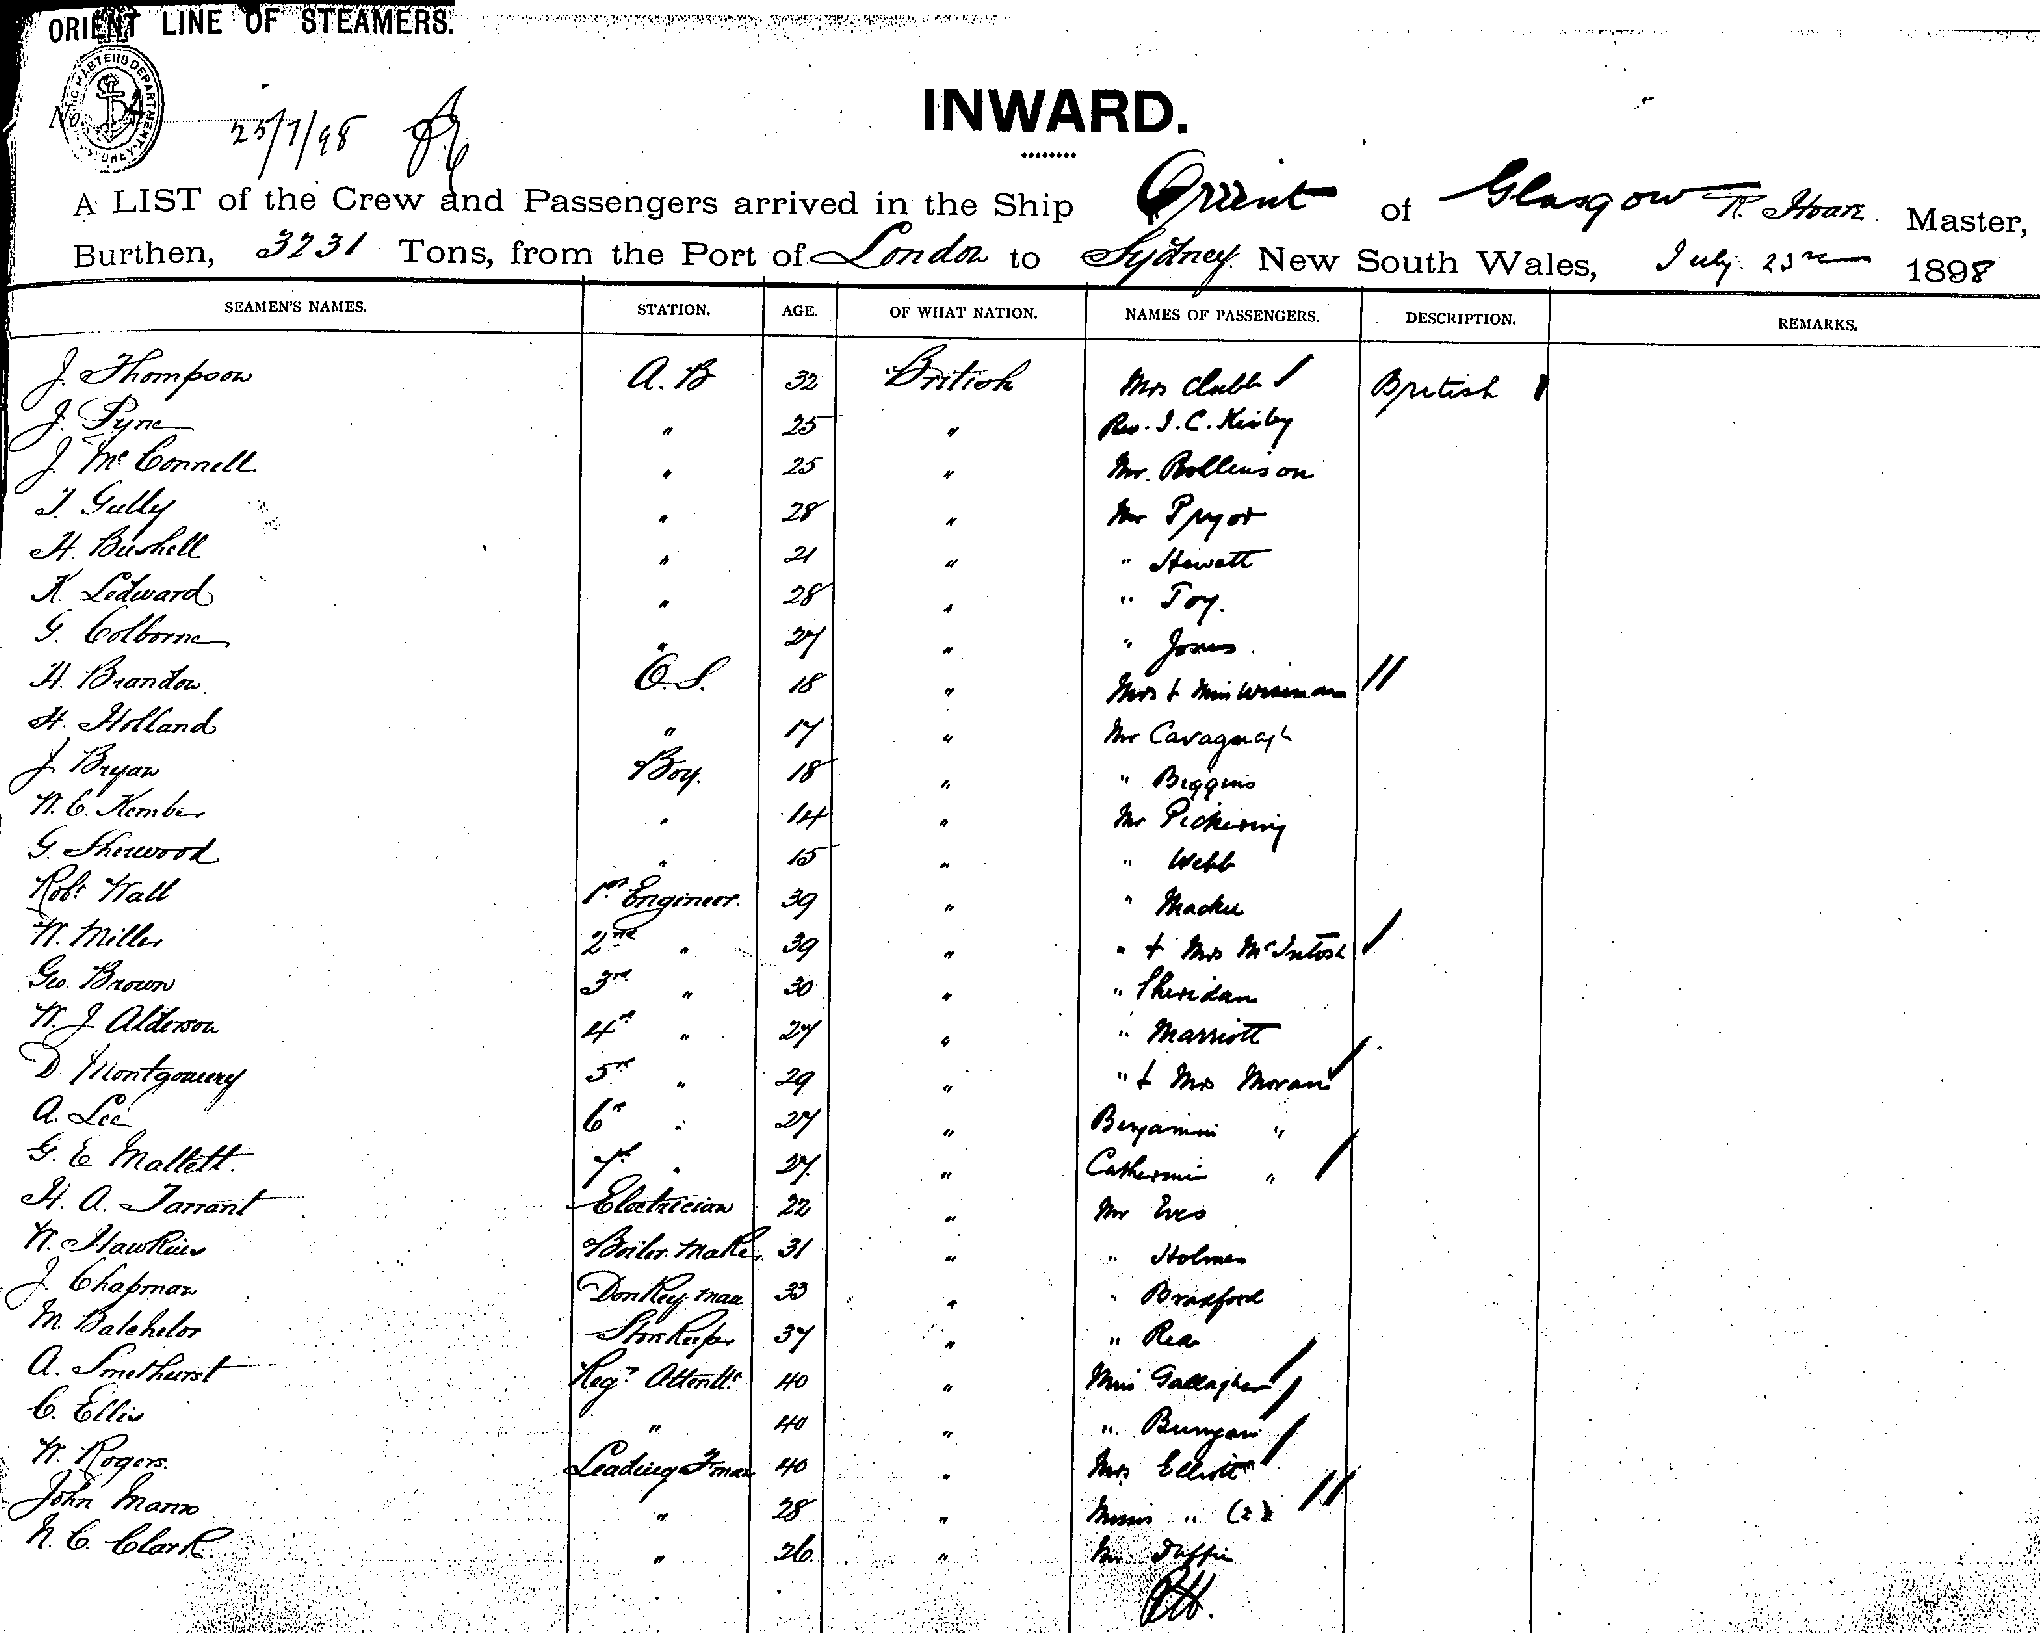 ORIENT LINE OF STEAMERS.
No.
25/7/98
INWARD.
A LIST of the Crew and Passengers arrived in the Ship Orient of Glasgow R. Hoare Master,
Burthen, 3231 Tons, from the Port of London to Sydney New South Wales, July 23rd 1898
SEAMEN'S NAMES. STATION. AGE. OF WHAT NATION. NAMES OF PASSENGERS. DESCRIPTION. REMARKS.
J. Thompson A.B 32 British Mrs Clubb British
J. Pyne " 25 " Rev. J. C. Kirby
J. McConnell " 25 " Mr. Rollinson
T. Gully " 28 " Mr Pryor
H. Bushell " 21 " " Hewett
K. Ledward " 28 " " Toy.
G. Colborne " 27 " " Jones.
H. Brandon O.S. 18 " Mrs & Miss Wiseman
H. Holland " 17 " Mr Cavagnagh
J. Bryan Boy. 18 " " Biggins
W. C. Kember " 14 " Mr Pickering
G. Sherwood " 15 " " Webb
Robt Wall 1st Engineer. 39 " " Mackie
W. Miller 2nd " 39 " " & Mrs McIntosh
Geo. Brown 3rd " 30 " " Sheridan
W. J. Alderson 4th " 27 " " Marriott
D. Montgomery 5th " 29 " " & Mrs Moran
A. Lee 6th " 27 " Benjamin "
G. E Mallett. 7th " 27. " Catherine "
H. A. Tarrant Electrician 22 " Mr Eves
W. Hawkins Boiler Maker 31 " " Holmes
J. Chapman Donkeyman 33 " " Bradford
M. Batchelor Storekeeper 37 " " Rea
A. Smethurst Regr Attendt 40 " Miss Gallagher
C. Ellis " 40 " " Bunyan
W. Rogers. Leading Fman 40 " Mrs Elliott
John Mann " 28 " Misses " (2)
N. C. Clark. " 26 " Mr Duffie